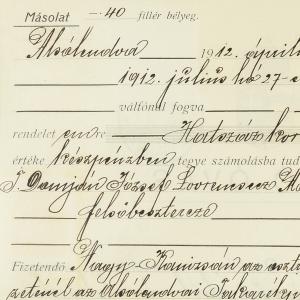 Másolat — 40 fillér bélyeg.
Alsólendva 1912. április
1912. július hó 27-
váltónál fogva
rendelet emre Hatszáz kor
értéke készpénzben tegye számolásba tud
T. Damján József Lovrencsecz M
felsőbeszterecze
Fizetendő Nagy-Kanizsán az oszt
zeténél az Alsólendvai Takarék